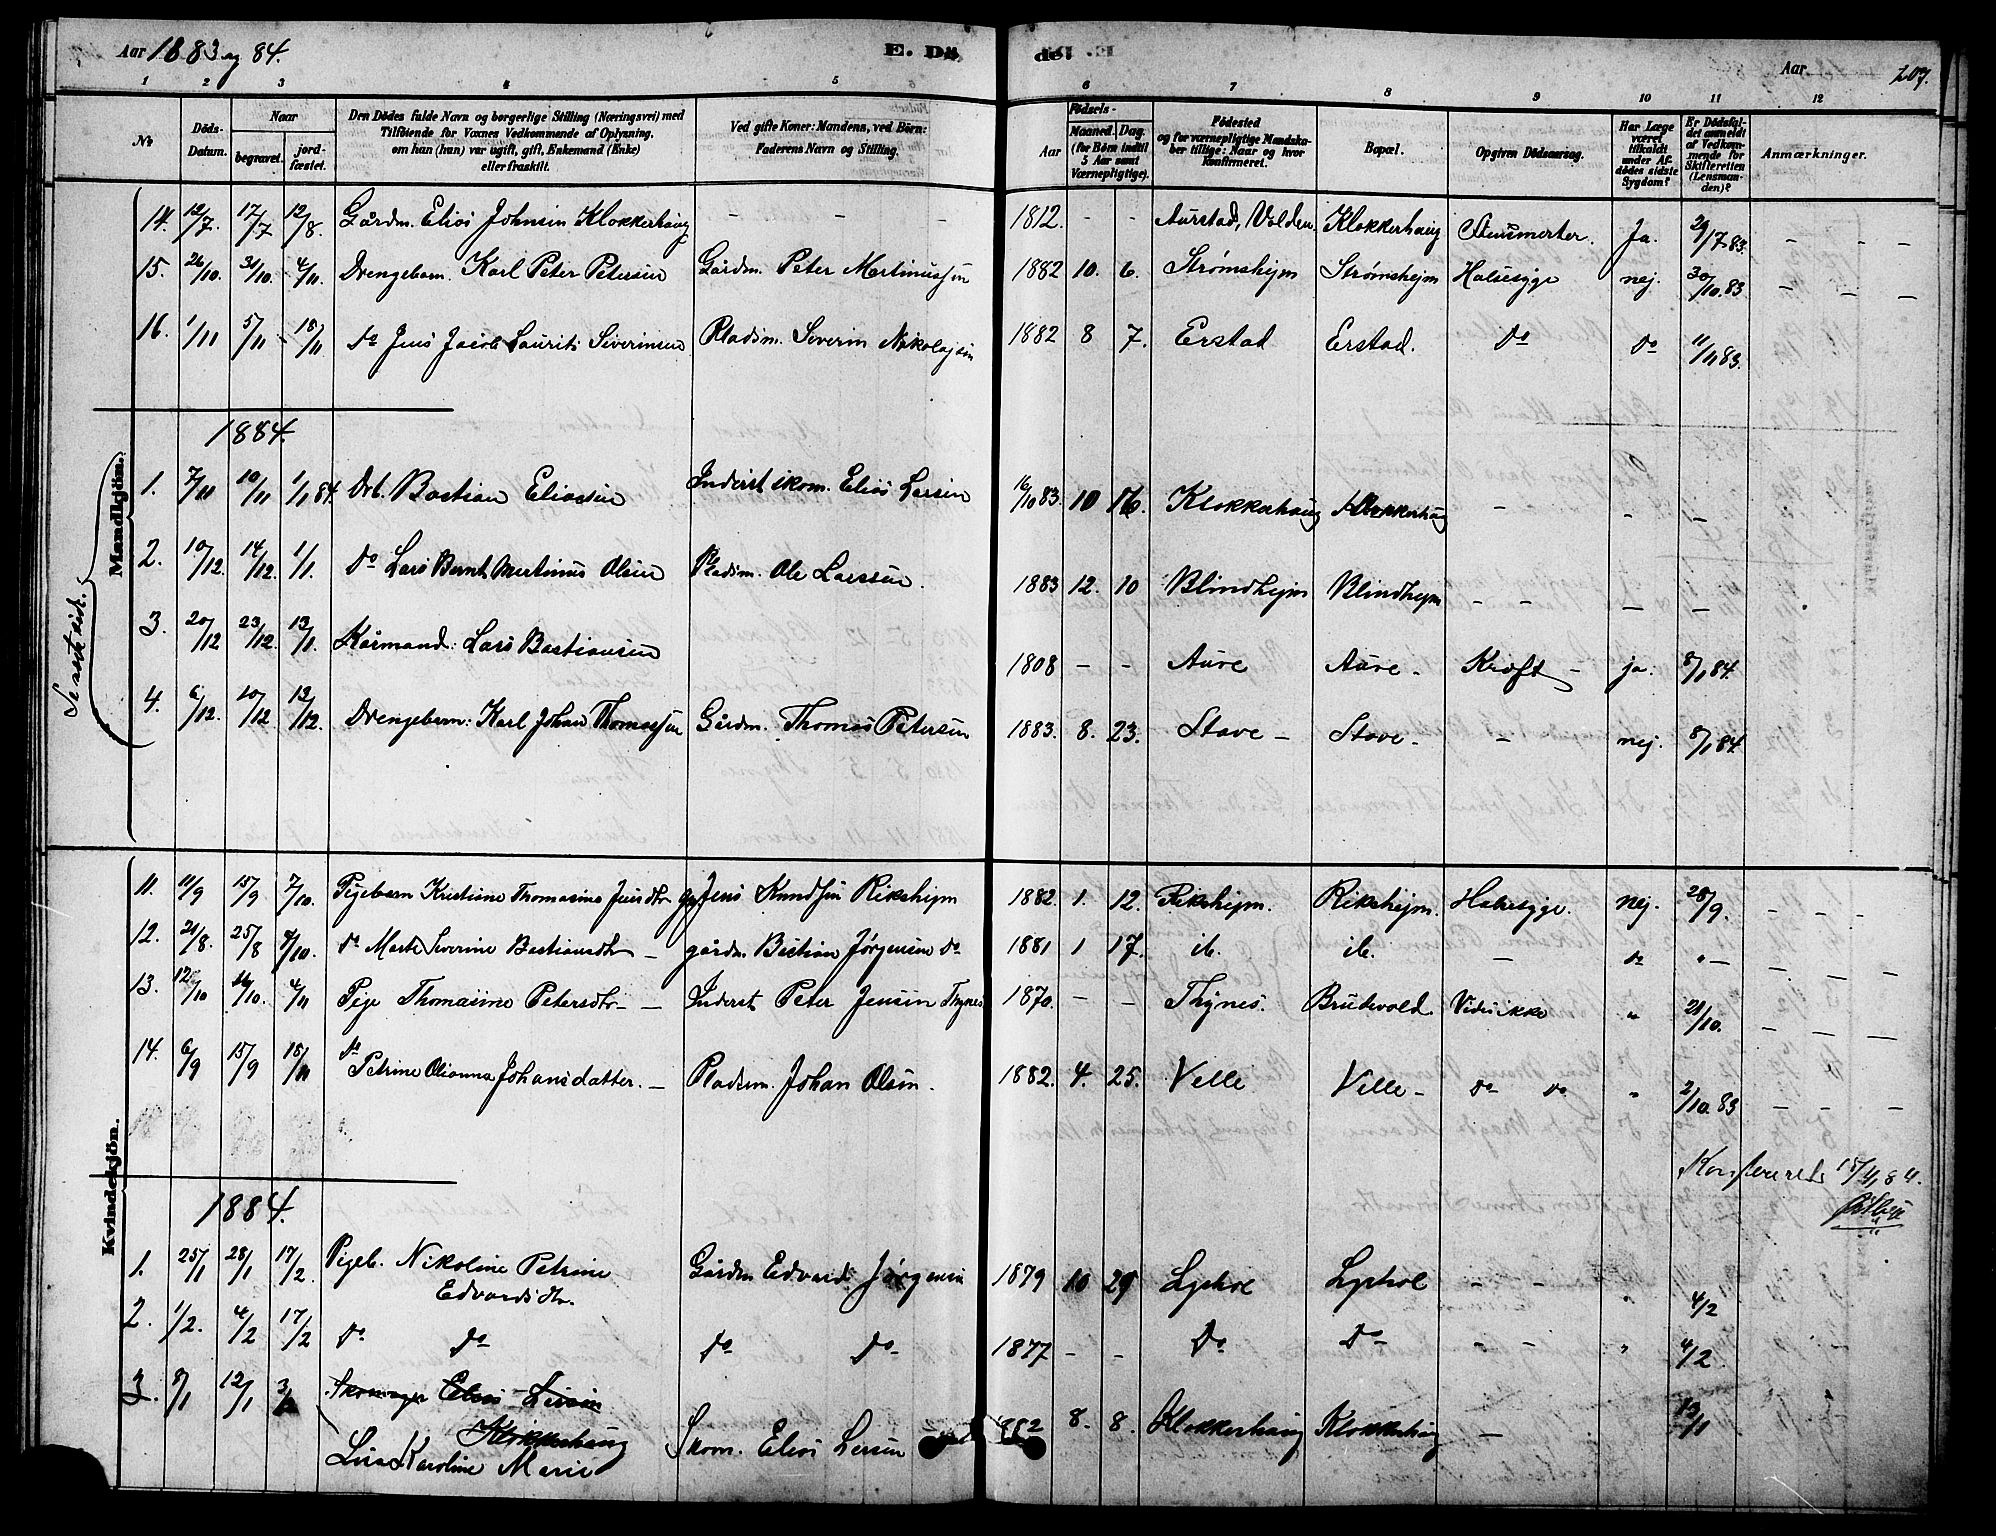 Aar 1883 og 84. E. Dö de. Aar 207.
1 2 3 4 5 6 7 8 9 10 11 12
No. Döds-Datum. Naar begravet. jord-fæstet. Den Dödes fulde Navn og borgerlige Stilling (Næringsvei) med Tilföiende for Voxnes Vedkommende af Oplysning, om han (hun) var ugift, gift, Enkemand (Enke) eller fraskilt. Ved gifte Koner: Mandens, ved Börn: Faderens Navn og Stilling. Födsels- Aar Maaned. Dag. (for Börn indtil 5 Aar samt Værnepligtige). Födested og for værnepligtige Mandskaber tillige: Naar og hvor Konfirmeret. Bopæl. Opgiven Dödsaarsag. Har Læge været tilkaldt under Afdödes sidste Sygdom? Er Dödsfaldet anmeldt af Vedkommende for Skifteretten (Lensmanden)? Anmærkninger.
Mandkjön.
14. 12/7. 17/7 12/8. Gårdm. Elias Johnsen Klokkerhaug - - - 1812. - - Aurstad, Volden Klokkerhaug Ja. 29/7 83. - - -
15. 26/10. 31/10. 4/11. Drengebarn. Karl Peter Petersen Gårdm. Peter Martinussen 1882 10. 6. Strømshejm Strømshejm Halsesyge nej. 30/10.83 - - -
16. 1/11 5/11 18/11 Do Jens Jacob Laurits Severinsen Pladsm. Severin Nikolajsen 1882 8 7. Erstad Erstad. Do Do 11/11 83.
1884.
1. 7/11 10/11 1/1 84. Drb. Bastian Eliassen Inderst skom. Elias Larsen 16/10 83. 10 16. Klokkerhaug Klokkerhaug - - -
2. 10/12. 14/12. 1/1. Do Lars Bernt Martinus Olsen Pladsm. Ole Larssen. 1883 12. 10 Blindhejm Blindhejm - - - -
3. 20/12 23/12. 13/1. Kårmand: Lars Bastiansen 1808 - - Aure Aure - Kræft - ja. 8/1 84.
4. 6/12. 10/12 12/12. Drengebarn: Karl Johan Thomassen Gårdm. Thomas Petersen 1883. 8. 23. Stave - Stave - - nej. 8/1 84.
Kvindekjön.
11. 11/9 15/9 7/10. Pigebarn Kristine Thomasine Jensdtr Jens Knudsen Rikshejm 1882. 1. 12. Rikshejm. Rikshejm. Halsesyge. nej. 28/9. - - -
12. 21/8. 25/8 /10. Do Marte Severine Bastiansdtr - gårdm. Bastian Jørgensen Do 1881 1 17. ib. ib. - Do " - - - -
13. 12/10 16/10. 4/11 Pige Thomasine Petersdtr - Inderst Peter Jensen Thynes 1870. - - Thynes. Brudevold. " 21/10. - - -
14. 6/9 15/9 18/11 Do Petrine Olianna Johansdatter. - Pladsm. Johan Olsen. 1882. 4. 25. Velle Velle - Do Do " 2/10. 83 - - -
Konfereret 15/4 84.
1884.
1. 25/1 28/1 17/2. Pigeb. Nikoline Petrine Edvardsdtr. Gårdm Edvard Jørgensen 1879 10 29 Lyshol Lyshol - - " 4/2
2. 1/2. 4/2 17/2 Do Do Do Do 1877 - - Do Do - - " 4/2
3. 8/1 12/1 Skomager Elias Larsen Klokkerhaug
Karoline Marie Skom. Elias Larsen 1882 8. 8. Klokkerhaug Klokkerhaug - 13/1